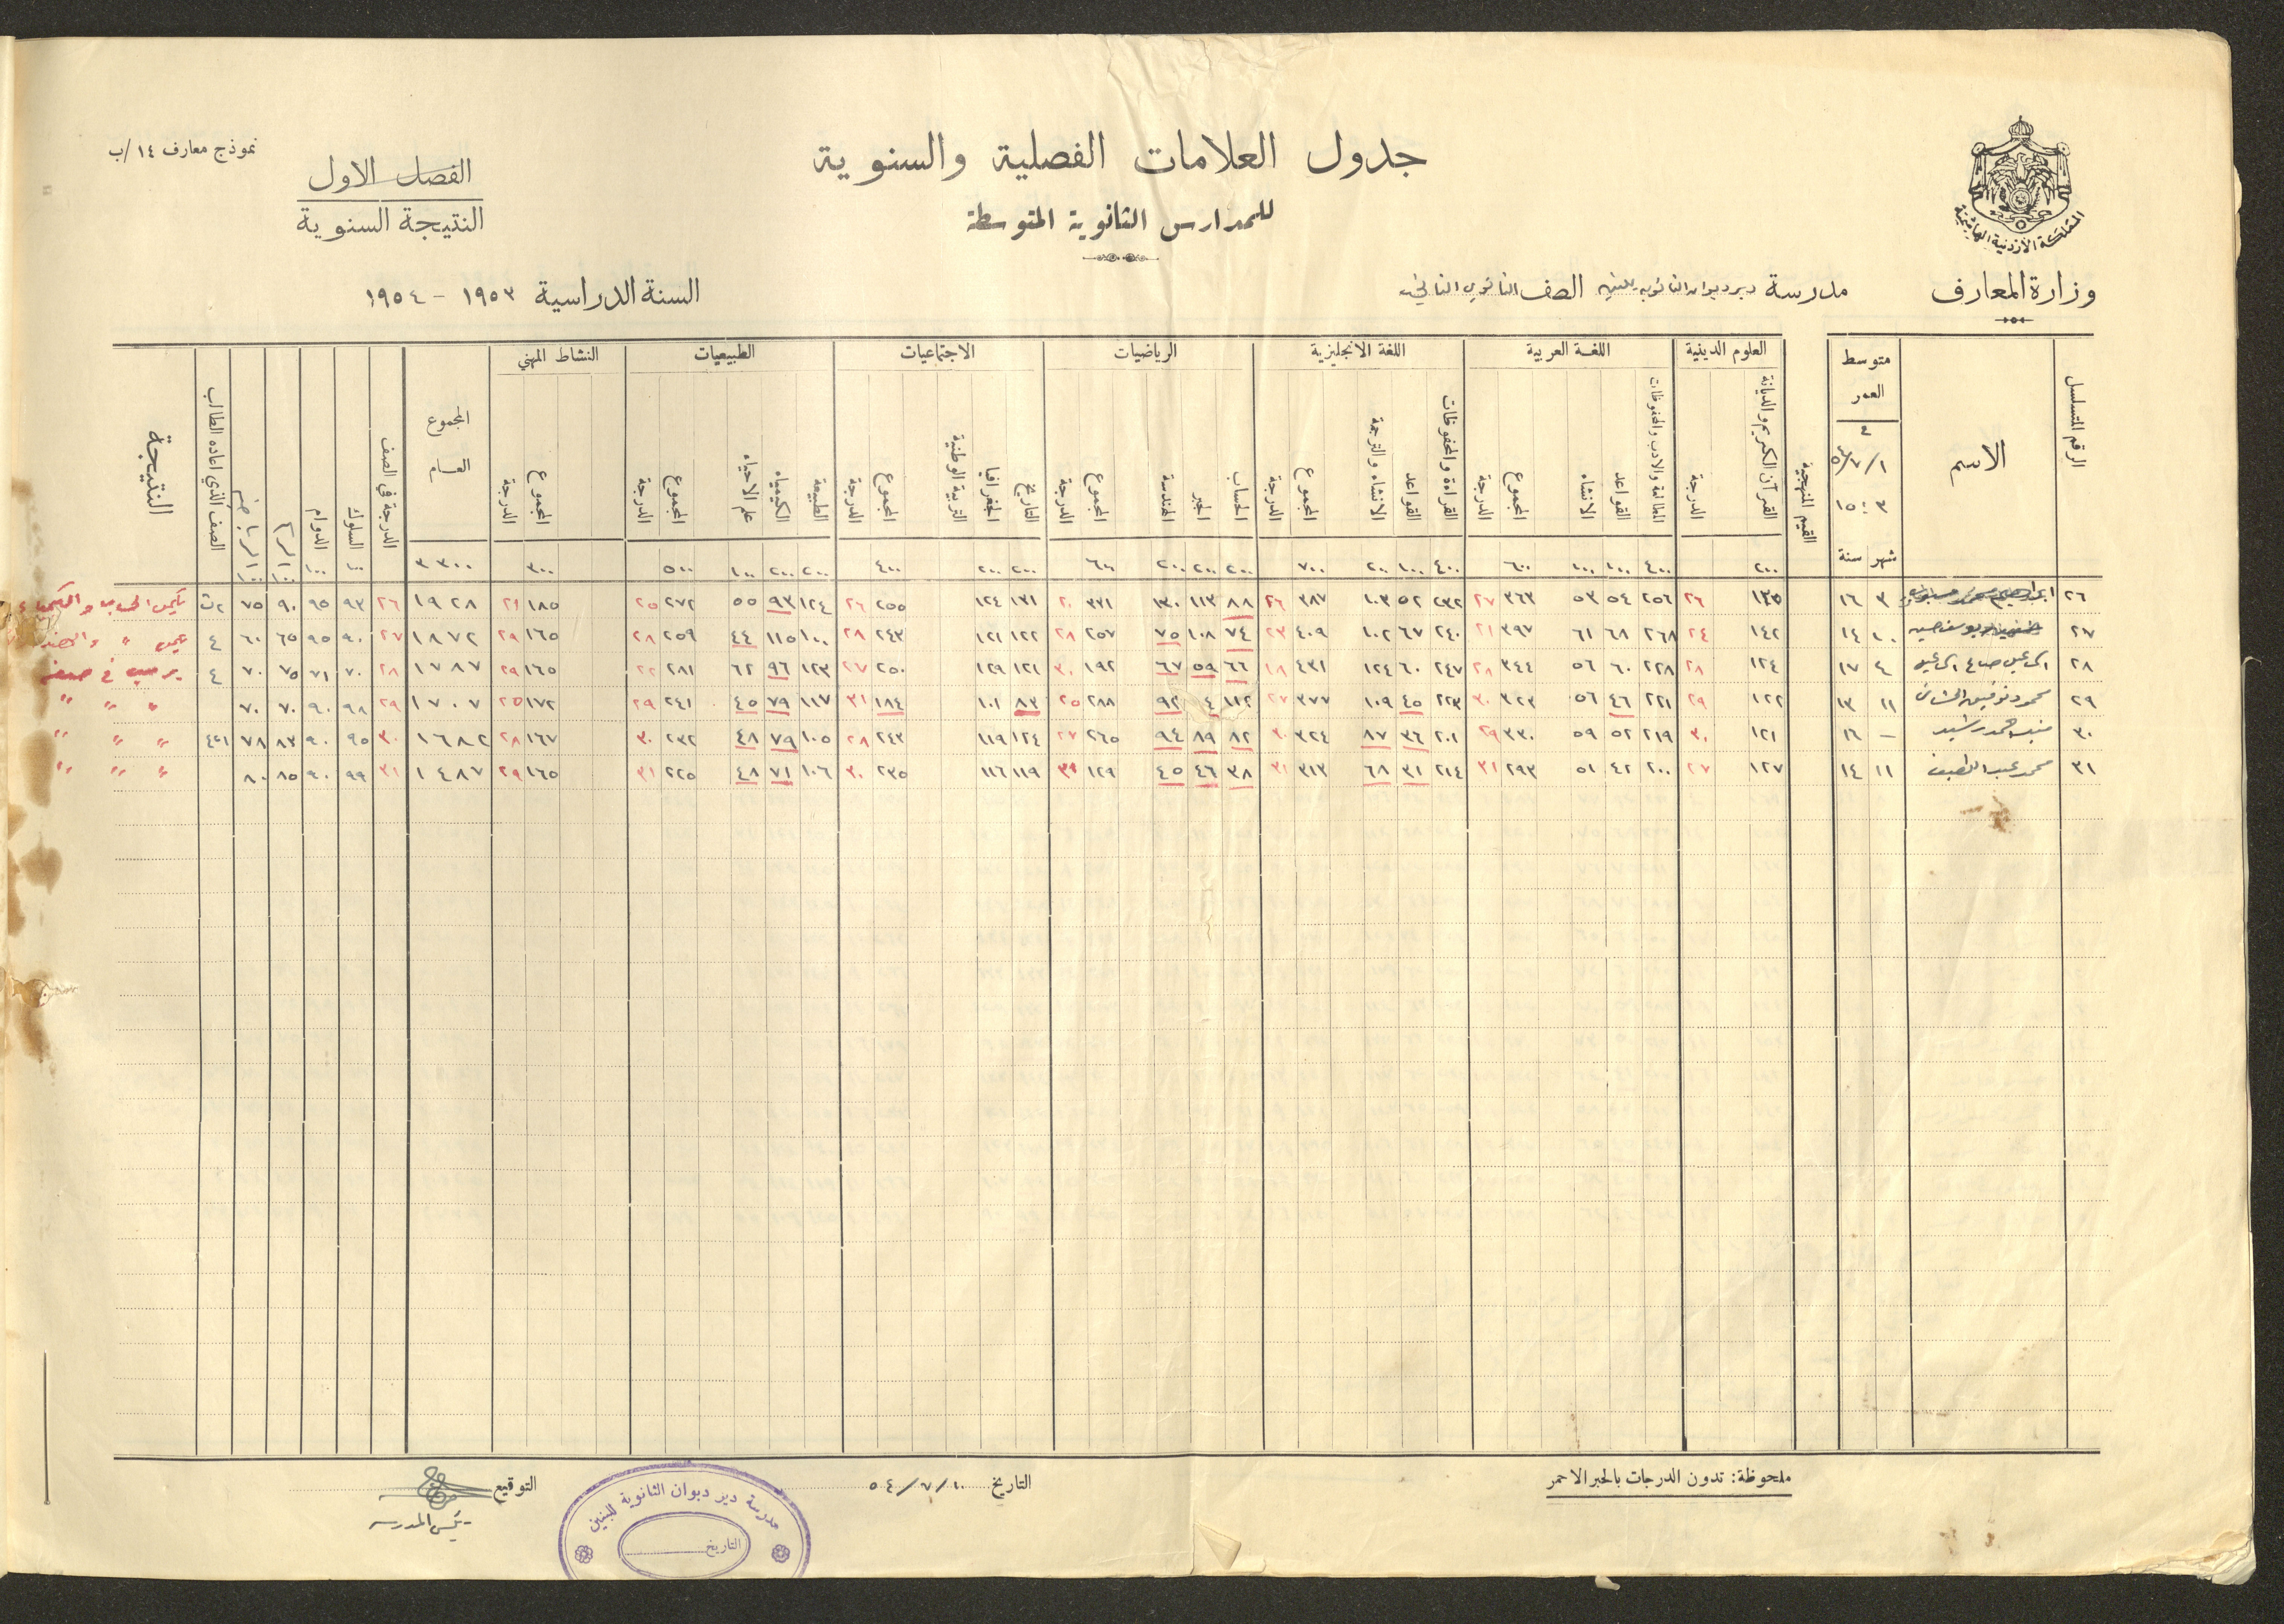 نموذج معارف ١٤/ب
جدول العلامات الفصلية والسنوية
للمدارس الثانوية المتوسطة
الفصل الاول
النتيجة السنوية
المملكة الأردنية الهاشمية
وزارة المعارف
مدرسة دير دبوان الثانوية للبنين الصف الثانوي الثاني
السنة الدراسية ١٩٥٣ - ١٩٥٤
الرقم المتسلسل
الاسم
متوسط العمر
٤
١/٧/٥٤
٣ : ١٥
شهر سنة
القيم المنهجية
العلوم الدينية
القرآن الكريم والديانة الدرجة
اللغة العربية
المطالعة والادب والمحفوظات القواعد الانشاء المجموع الدرجة
اللغة الانجليزية
القراءة والمحفوظات القواعد الانشاء والترجمة المجموع الدرجة
الرياضيات
الحساب الجبر الهندسة المجموع الدرجة
الاجتماعيات
التاريخ الجغرافيا التربية الوطنية المجموع الدرجة
الطبيعيات
الطبيعة الكيمياء علم الاحياء المجموع الدرجة
النشاط المهني
المجموع الدرجة
المجموع العام
الدرجة في الصف
السلوك
الدوام
الرسم
الرياضة
الصف الذي اعاده الطالب
النتيجة
٢٠٠ ٤٠٠ ١٠٠ ١٠٠ ٦٠٠ ٤٠٠ ١٠٠ ٢٠٠ ٧٠٠ ٢٠٠ ٢٠٠ ٢٠٠ ٦٠٠ ٢٠٠ ٢٠٠ ٤٠٠ ٢٠٠ ٢٠٠ ١٠٠ ٥٠٠ ٣٠٠ ٣٣٠٠ ١٠٠ ١٠٠ ١٠٠ ١٠٠
٢٦ ابراهيم محمد ٣ ١٦ ١٣٥ ٢٦ ٢٥٦ ٥٤ ٥٣ ٣٦٣ ٢٧ ٢٣٢ ٥٢ ١٠٣ ٣٨٧ ٢٦ ٨٨ ١١٣ ١٣٠ ٣٣١ ٢٠ ١٣١ ١٢٤ ٢٥٥ ٢٦ ١٢٤ ٩٣ ٥٥ ٢٧٢ ٢٥ ١٨٥ ٢١ ١٩٢٨ ٢٦ ٩٣ ٩٥ ٩٠ ٧٥ ٢ث يكمل الحساب والكيمياء
٢٧ يوسف حسين ١٠ ١٤ ١٤٢ ٢٤ ٢٦٨ ٦٨ ٦١ ٣٩٧ ٢١ ٢٤٠ ٦٧ ١٠٢ ٤٠٩ ٢٣ ٧٤ ١٠٨ ٧٥ ٢٥٧ ٢٨ ١٢٢ ١٢١ ٢٤٣ ٢٨ ١٠٠ ١١٥ ٤٤ ٢٥٩ ٢٨ ١٦٥ ٢٩ ١٨٧٢ ٢٧ ٩٠ ٩٥ ٦٥ ٦٠ ٤ يكمل "
٢٨ اسماعيل صالح اسماعيل ٤ ١٧ ١٢٤ ٢٨ ٢٢٨ ٦٠ ٥٦ ٣٤٤ ٢٨ ٢٤٧ ٦٠ ١٢٤ ٤٣١ ١٨ ٦٦ ٥٩ ٦٧ ١٩٢ ٣٠ ١٢١ ١٢٩ ٢٥٠ ٢٧ ١٢٣ ٩٦ ٦٢ ٢٨١ ٢٢ ١٦٥ ٢٩ ١٧٨٧ ٢٨ ٧٠ ٧١ ٧٥ ٧٠ ٤ يرسب في صفه
٢٩ محمود توفيق ١١ ١٣ ١٢٢ ٢٩ ٢٢١ ٤٦ ٥٦ ٣٢٣ ٣٠ ٢٢٣ ٤٥ ١٠٩ ٣٧٧ ٢٧ ١١٢ ٩٢ ٢٨٨ ٢٥ ٨٣ ١٠١ ١٨٤ ٣١ ١١٧ ٧٩ ٤٥ ٢٤١ ٢٩ ١٧٢ ٢٥ ١٧٠٧ ٢٩ ٩٨ ٩٠ ٧٠ ٧٠ " " "
٣٠ احمد رشيد - ١٦ ١٢١ ٣٠ ٢١٩ ٥٢ ٥٩ ٣٣٠ ٢٩ ٢٠١ ٣٦ ٨٧ ٣٢٤ ٣٠ ٨٢ ٨٩ ٩٤ ٢٦٥ ٢٧ ١٢٤ ١١٩ ٢٤٣ ٢٨ ١٠٥ ٧٩ ٤٨ ٢٣٢ ٣٠ ١٦٧ ٢٨ ١٦٨٢ ٣٠ ٩٥ ٩٠ ٨٣ ٧٨ " " "
٣١ محمد عبد اللطيف ١١ ١٤ ١٢٧ ٢٧ ٢٠٠ ٤٢ ٥١ ٢٩٣ ٣١ ٢١٤ ٣١ ٦٨ ٣١٣ ٣١ ٣٨ ٤٦ ٤٥ ١٢٩ ٣١ ١١٩ ١١٦ ٢٣٥ ٣٠ ١٠٦ ٧١ ٤٨ ٢٢٥ ٣١ ١٦٥ ٢٩ ١٤٨٧ ٣١ ٩٩ ٩٠ ٨٥ ٨٠ " " "
ملحوظة: تدون الدرجات بالحبر الاحمر
التاريخ ١٠/٧/٥٤
التوقيع
رئيس المدرسة
مدرسة دير دبوان الثانوية للبنين
التاريخ